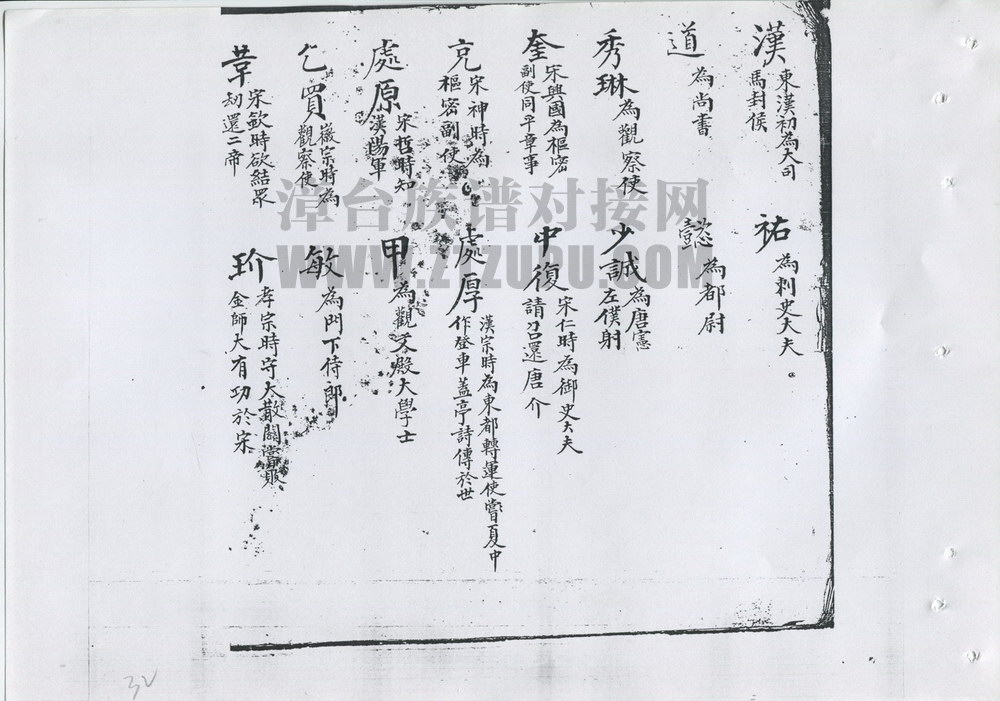 漢 東漢初為大司馬封侯
祐 為刺史大夫
道 為尚書
懿 為都尉
秀琳 為觀察使
少誠 為唐憲左僕射
奎 宋興國為樞密副使同平章事
中復 宋仁時為御史大夫請召還唐介
克 宋神時為樞密副使
處厚 漢宗時為東都轉運使嘗夏中作登車蓋亭詩傳於世
處原 宋哲時知漢陽軍
甲 為觀文殿大學士
買 徽宗時為觀察使
敏 為門下侍郎
宋欽時欲結眾刼還二帝
玠 孝宗時守大散關嘗報金師大有功於宋
漳台族谱对接网
WWW.ZTZUPU.COM
32